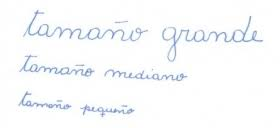 tamaño grande
tamaño mediano
tamaño pequeño